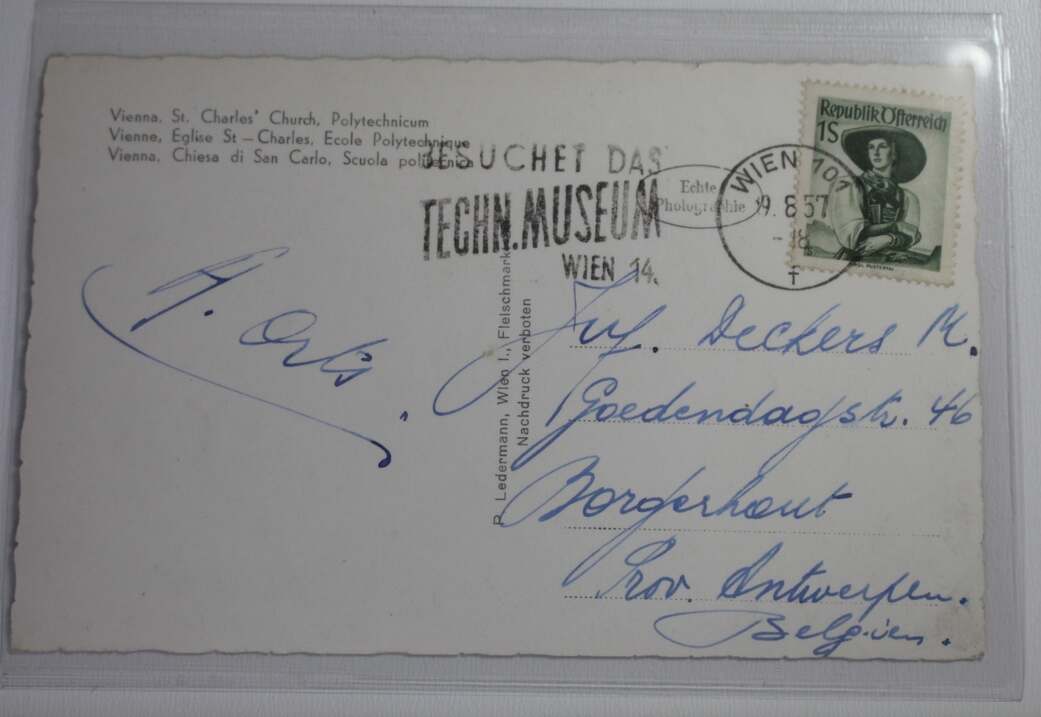 Vienna. St. Charles' Church, Polytechnicum
Vienne, Eglise St – Charles, Ecole Polytechnique
Vienna. Chiesa di San Carlo, Scuola politecnica
BESUCHET DAS
TECHN. MUSEUM
WIEN 14.
Echte
Photographie
WIEN 101
9. 8 57
- 18
f
Republik Österreich
1S
P. Ledermann, Wien I., Fleischmark
Nachdruck verboten
Juf. Deckers M.
Goedendagstr. 46
Borgerhout
Prov. Antwerpen.
Belgien.